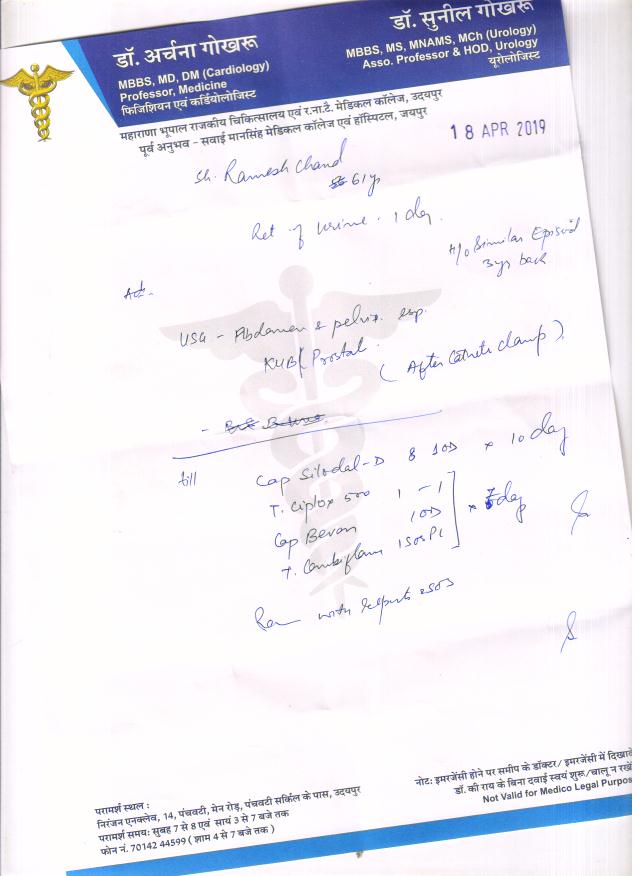 डॉ. अर्चना गोखरू
MBBS, MD, DM (Cardiology)
Professor, Medicine
फिजिशियन एवं कार्डियोलोजिस्ट
डॉ. सुनील गोखरू
MBBS, MS, MNAMS, MCh (Urology)
Asso. Professor & HOD, Urology
यूरोलोजिस्ट
महाराणा भूपाल राजकीय चिकित्सालय एवं र.ना.टै. मेडिकल कॉलेज, उदयपुर
पूर्व अनुभव - सवाई मानसिंह मेडिकल कॉलेज एवं हॉस्पिटल, जयपुर
18 APR 2019
Sh. Ramesh Chand
61y
Ret of urine . 1 day.
H/o Similar Episod
3yrs back
Adv.
USG - Abdomen & pelvis. esp.
KUB/ Prostat.
( After Cathete clamp ).
till
Cap Silodal-D 8 1OD x 10 day
T. Ciplox 500 1 - 1
Cap Bevon 1OD
x 5 day
T. Combiflam 1SOS
with Reports SOS
परामर्श स्थल :
निरंजन एनक्लेव, 14, पंचवटी, मेन रोड़, पंचवटी सर्किल के पास, उदयपुर
परामर्श समय: सुबह 7 से 8 एवं सायं 3 से 7 बजे तक
फोन नं. 70142 44599 ( शाम 4 से 7 बजे तक )
नोट: इमरजेंसी होने पर समीप के डॉक्टर/ इमरजेंसी में दिखावे
डॉ. की राय के बिना दवाई स्वयं शुरू/चालू न रखें
Not Valid for Medico Legal Purpos